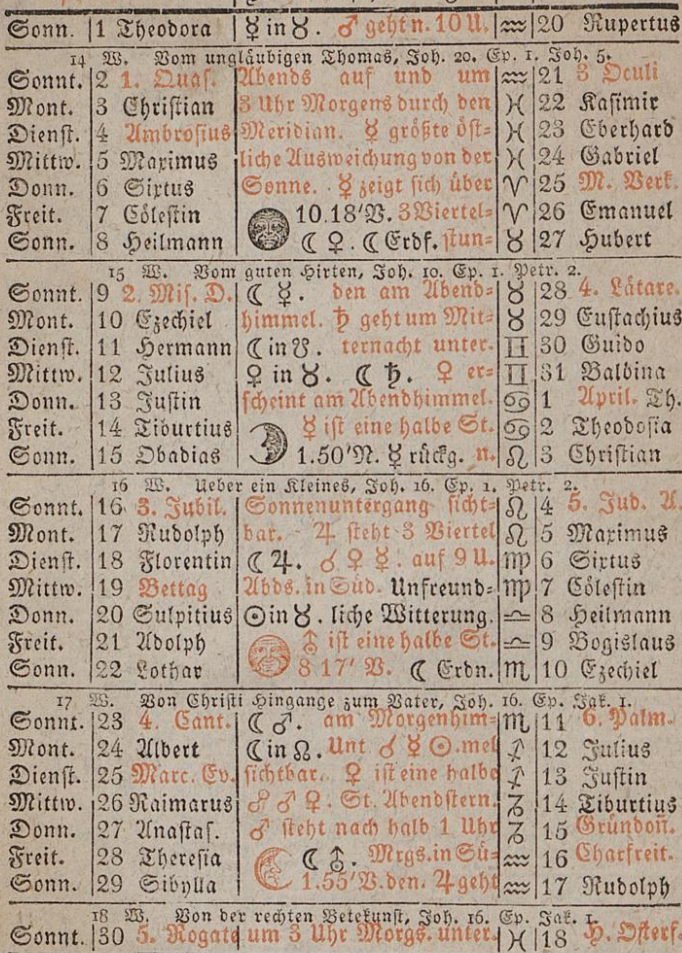 Sonn. 1 Theodora ☿ in ♉. ♂ geht n. 10 U. ♒ 20 Rupertus
14 W. Vom ungläubigen Thomas, Joh. 20. Ep. 1. Joh. 5.
Sonnt. 2 1. Quas. Abends auf und um ♒ 21 3 Oculi
Mont. 3 Christian 3 Uhr Morgens durch den ♓ 22 Kasimir
Dienst. 4 Ambrosius Meridian. ☿ größte öst= ♓ 23 Eberhard
Mittw. 5 Maximus liche Ausweichung von der ♓ 24 Gabriel
Donn. 6 Sixtus Sonne. ☿ zeigt sich über ♈ 25 M. Verk.
Freit. 7 Cölestin 10.18'V. 3 Viertel= ♈ 26 Emanuel
Sonn. 8 Heilmann ☾ ♀. ☾ Erdf. stun= ♉ 27 Hubert
15 W. Vom guten Hirten, Joh. 10. Ep. 1. Petr. 2.
Sonnt. 9 2. Mis. D. ☾ ☿. den am Abend= ♉ 28 4. Lätare.
Mont. 10 Ezechiel himmel. ♄ geht um Mit= ♉ 29 Eustachius
Dienst. 11 Hermann ☾ in ☋. ternacht unter. ♊ 30 Guido
Mittw. 12 Julius ♀ in ♉. ☾ ♄. ♀ er= ♊ 31 Balbina
Donn. 13 Justin scheint am Abendhimmel. ♋ 1 April. Th.
Freit. 14 Tiburtius ☿ ist eine halbe St. ♋ 2 Theodosia
Sonn. 15 Obadias 1.50'N. ☿ rückg. n. ♌ 3 Christian
16 W. Ueber ein Kleines, Joh. 16. Ep. 1. Petr. 2.
Sonnt. 16 3. Jubil. Sonnenuntergang sicht= ♌ 4 5. Jud. A.
Mont. 17 Rudolph bar. ♃ steht 3 Viertel ♌ 5 Maximus
Dienst. 18 Florentin ☾ ♃. ☌ ♀ ☿. auf 9 U. ♍ 6 Sixtus
Mittw. 19 Bettag Abds. in Süd. Unfreund= ♍ 7 Cölestin
Donn. 20 Sulpitius ☉ in ♉. liche Witterung. ♎ 8 Heilmann
Freit. 21 Adolph ⛢ ist eine halbe St. ♎ 9 Bogislaus
Sonn. 22 Lothar 8 17' V. ☾ Erdn. ♏ 10 Ezechiel
17 W. Von Christi Hingange zum Vater, Joh. 16. Ep. Jak. 1.
Sonnt. 23 4. Cant. ☾ ♂. am Morgenhim= ♏ 11 6. Palm.
Mont. 24 Albert ☾ in ☊. Unt ☌ ☿ ☉. mel ♐ 12 Julius
Dienst. 25 Marc. Ev. sichtbar. ♀ ist eine halbe ♐ 13 Justin
Mittw. 26 Raimarus ☍ ♂ ♀. St. Abendstern. ♑ 14 Tiburtius
Donn. 27 Anastas. ♂ steht nach halb 1 Uhr ♑ 15 Gründon̄.
Freit. 28 Theresia ☾ ⛢. Mrgs. in Sü= ♒ 16 Charfreit.
Sonn. 29 Sibylla 1.55'V. den. ♃ geht ♒ 17 Rudolph
18 W. Von der rechten Betekunst, Joh. 16. Ep. Jak. 1.
Sonnt. 30 5. Rogate um 3 Uhr Morgs. unter. ♓ 18 H. Osterf.